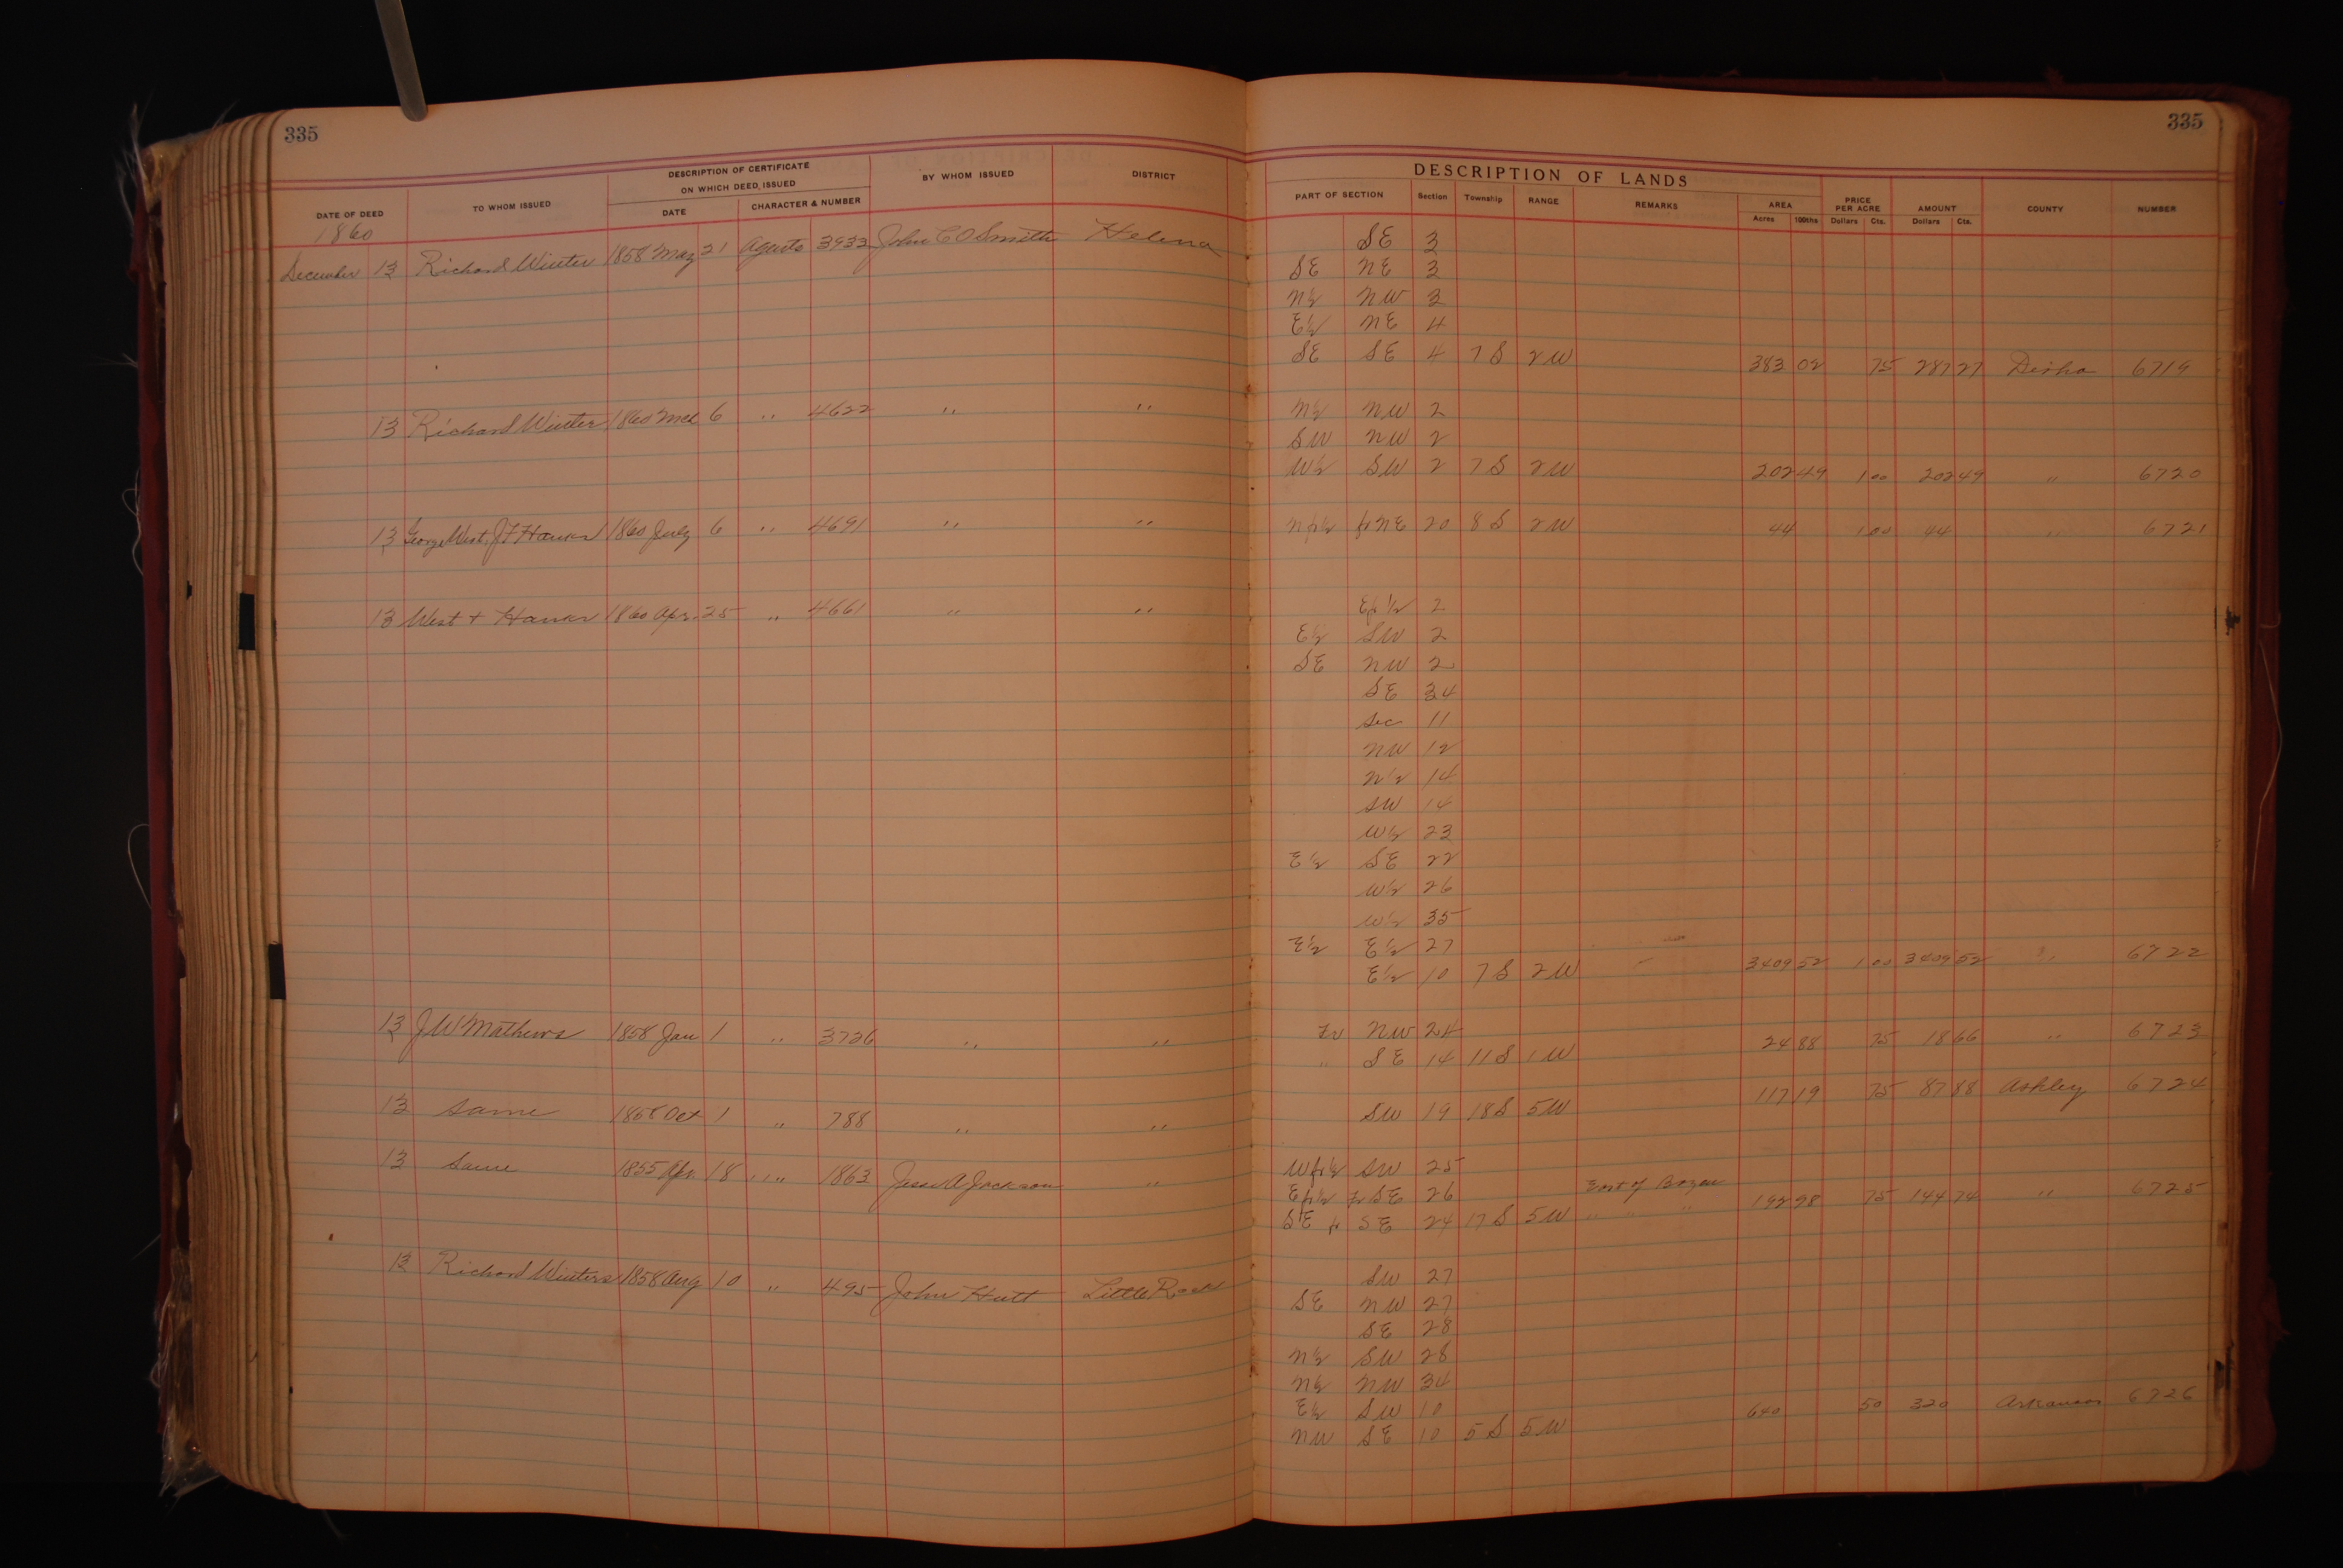 335
335
DESCRIPTION OF CERTIFICATE
ON WHICH DEED, ISSUED
DATE OF DEED TO WHOM ISSUED DATE CHARACTER & NUMBER BY WHOM ISSUED DISTRICT
DESCRIPTION OF LANDS
PART OF SECTION Section Township RANGE REMARKS AREA PRICE PER ACRE AMOUNT COUNTY NUMBER
Acres 100ths Dollars Cts. Dollars Cts.
1860
December 13 Richard Winter 1858 May 21 Agents 3933 John C O Smith Helena SE 3
SE NE 3
N½ NW 3
E½ NE 4
SE SE 4 7 S 2 W 383 02 75 287 27 Desha 6719
13 Richard Winter 1860 Mch 6 " 4622 " " N½ NW 2
SW NW 2
W½ SW 2 7 S 2 W 202 49 1 00 202 49 " 6720
13 George West, J F Hanks 1860 July 6 " 4691 " " N fr ½ fr NE 20 8 S 2 W 44 1 00 44 " 6721
13 West + Hanks 1860 Apr. 25 " 4661 " " E fr ½ 2
E½ SW 2
SE NW 2
SE 34
Sec 11
NW 12
N½ 14
SW 14
W½ 23
E½ SE 22
W½ 26
W½ 35
E½ E½ 27
E½ 10 7 S 2 W 3409 52 1 00 3409 52 " 6722
13 J W Mathews 1858 Jan 1 " 3726 " " Fr NW 24
" SE 14 11 S 1 W 24 88 75 18 66 " 6723
13 Same 1858 Oct 1 " 788 " " SW 19 18 S 5 W 117 19 75 87 88 Ashley 6724
13 Same 1855 Apr. 18 " " 1863 Jesse A Jackson " W fr ½ SW 25
E fr ½ fr SE 26 East of
SE fr SE 24 17 S 5 W " " " 192 98 75 144 74 " 6725
13 Richard Winters 1858 Aug 10 " 495 John Hutt Little Rock SW 27
SE NW 27
SE 28
N½ SW 28
N½ NW 34
E½ SW 10
NW SE 10 5 S 5 W 640 50 320 Arkansas 6726